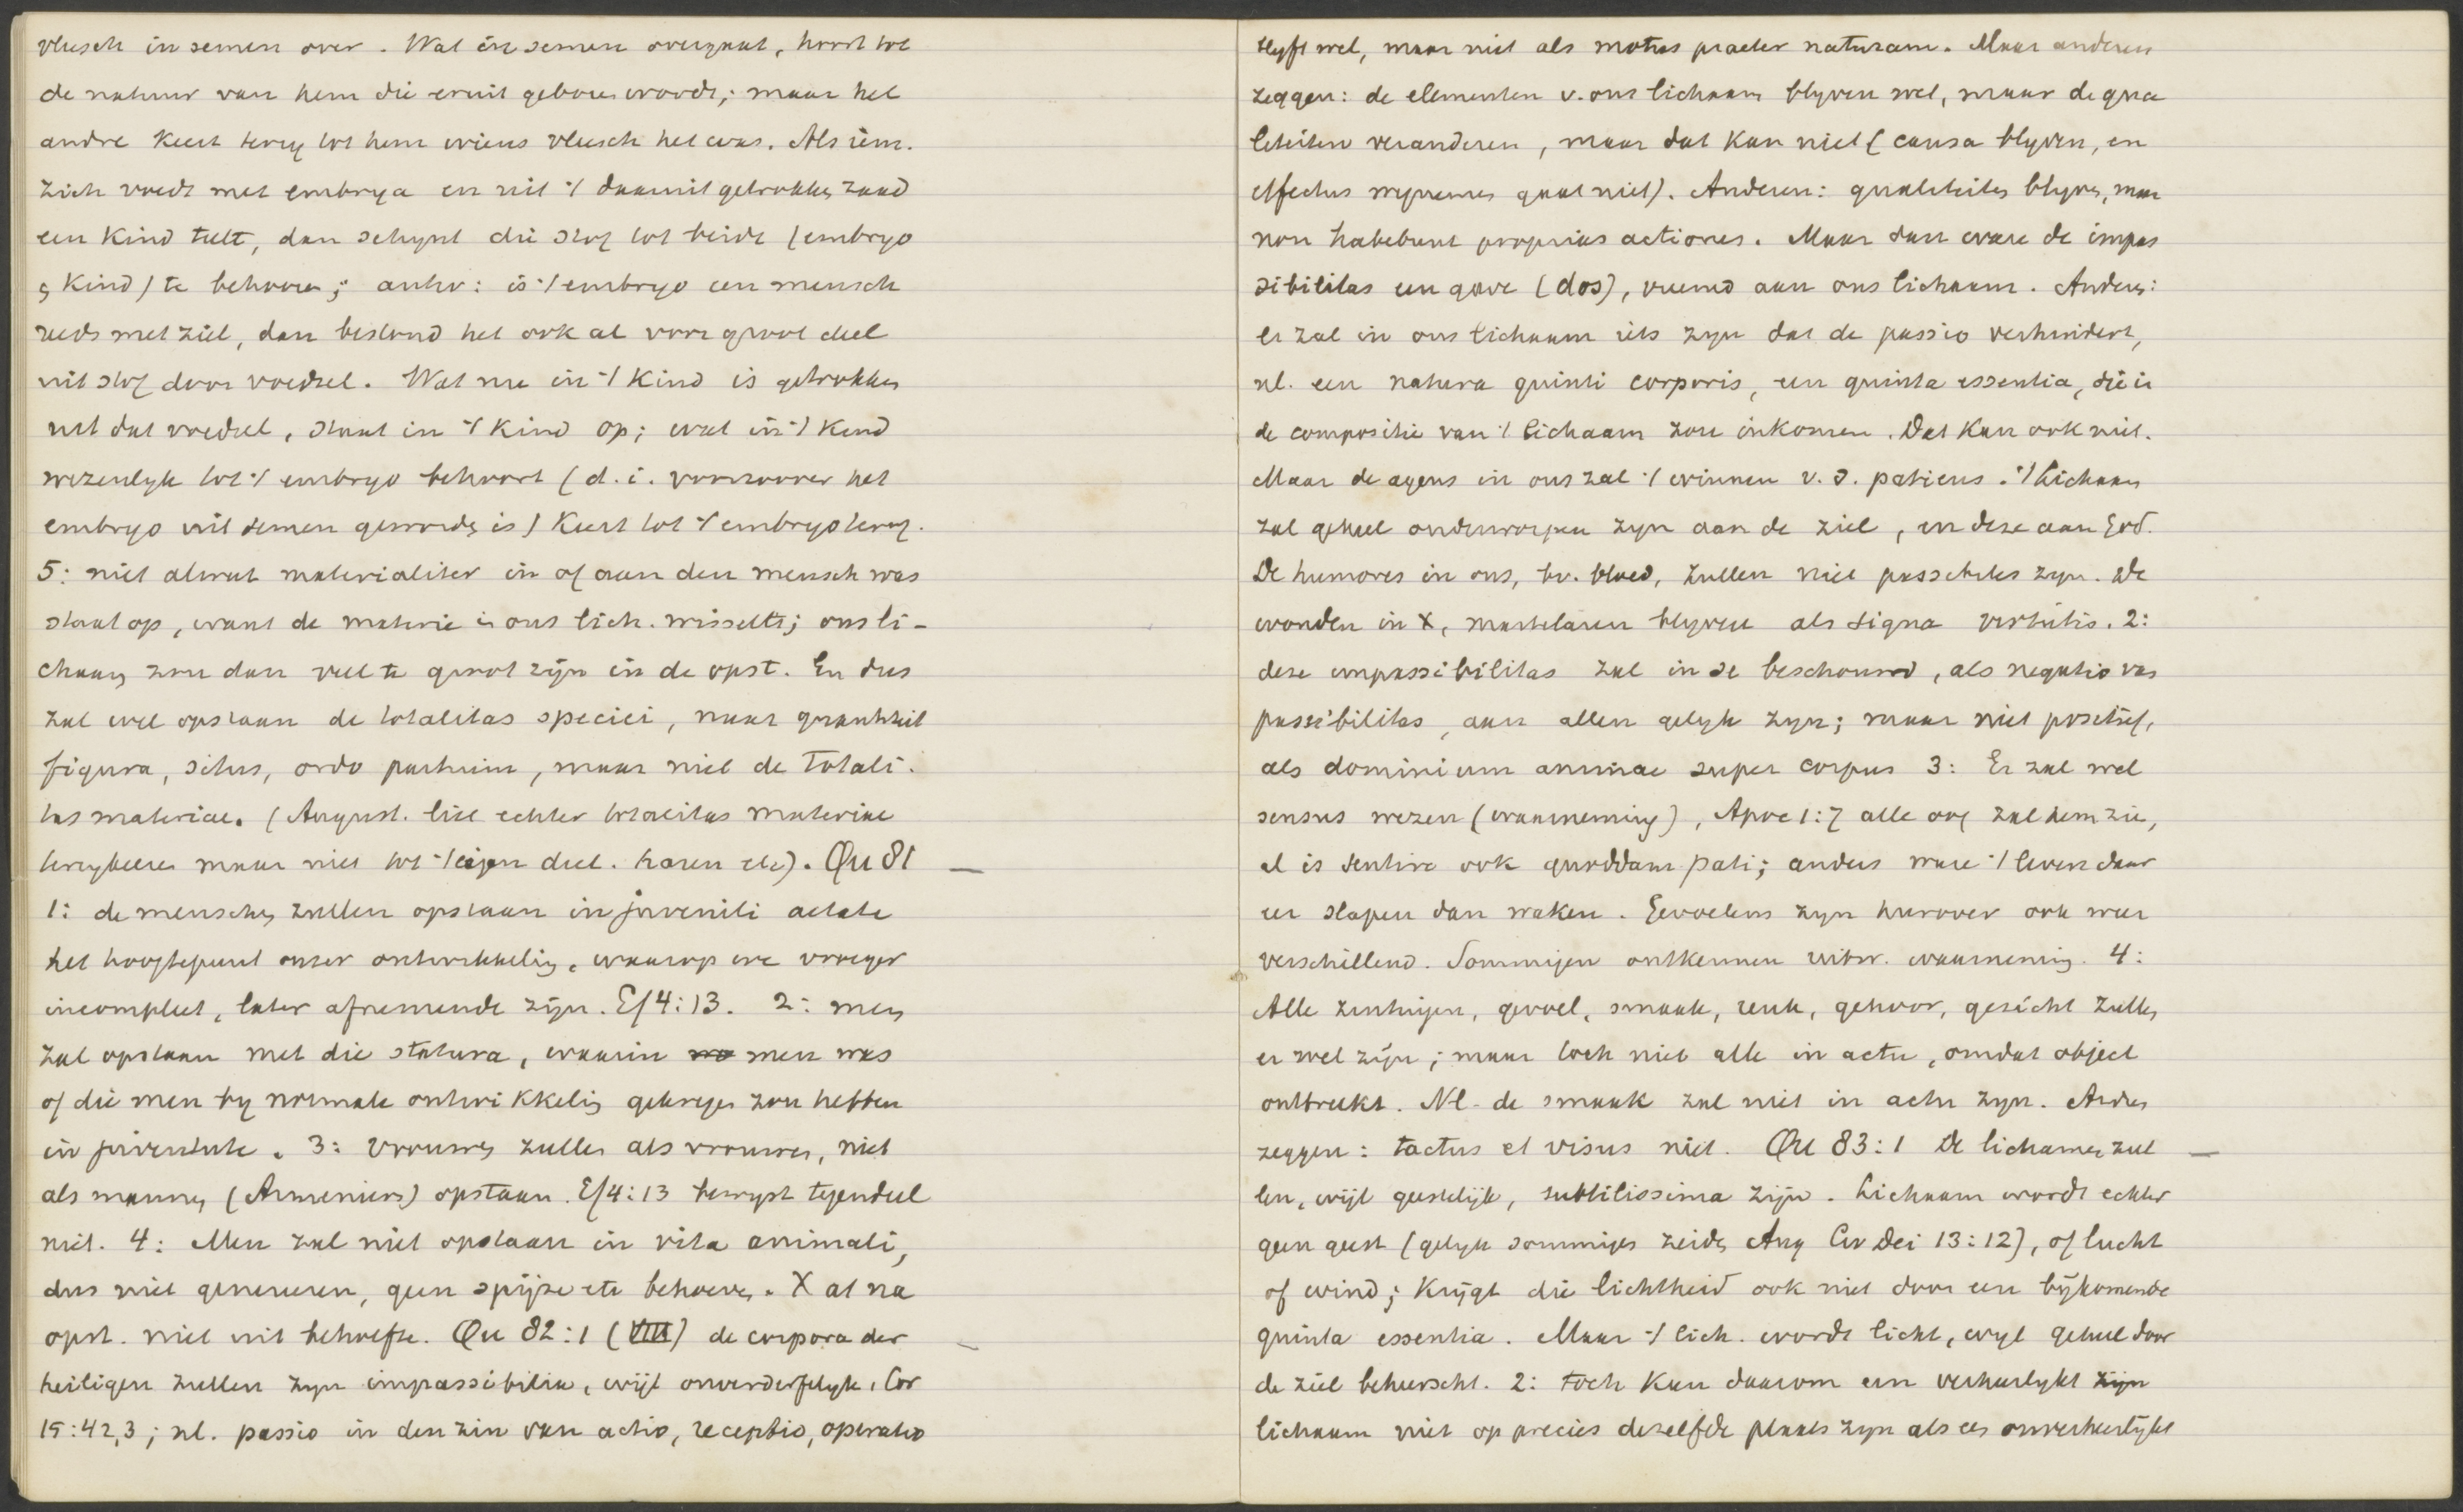 vleesch in semen over. Wat in semen overgaat, hoort tot
de natuur van hem die eruit geboren wordt; maar het
andre keert terug tot hem wiens vleesch het was. Als iem.
zich voedt met embrya en uit 't daaruit getrokken zaad
een kind teelt, dan schynt die stof tot beide (embryo
en kind) te behooren; antw: is 't embryo een mensch
reeds met ziel, dan bestond het ook al voor groot deel
uit stof door voedsel. Wat nu in 't kind is getrokken
uit dat voedsel, staat in 't kind op; wat in 't kind
wezenlyk tot 't embryo behoort (d.i. voorzoover het
embryo uit semen geworden is) keert tot 't embryo terug.
5: niet alwat materialiter in of aan den mensch was
staat op, want de materie in ons lich. wisselt; ons li-
chaam zou dan veel te groot zijn in de opst. En dus
zal wel opstaan de totalitas speciei, naar quantiteit
figura, situs, ordo partium, maar niet de totali-
tas materiae. (August. liet echter totalitas materiae
terugkeeren maar niet tot 't eigen deel. haren etc). Qu 81
1: de menschen zullen opstaan in juvenili aetate
het hoogtepunt onzer ontwikkeling, waarop we vroeger
incompleet, later afnemende zijn. Ef 4:13. 2: men
zal opstaan met die statura, waarin men was
of die men by normale ontwikkeling gekregen zou hebben
in juventute. 3: vrouwen zullen als vrouwen, niet
als mannen (Armeniers) opstaan. Ef 4:13 bewyst tegendeel
niet. 4: Men zal niet opstaan in vita animali,
dus niet genereeren, geen spijze etc behoeven. X at na
opst. niet uit behoefte. Qu 82:1 (VIII) de corpora der
heiligen zullen zyn impassibilia, wijl onverderfelyk, Cor
15:42,3; nl. passio in den zin van actio, receptio, operatio
blyft wel, maar niet als motus praeter naturam. Maar anderen
zeggen: de elementen v. ons lichaam blyven wel, maar de qua
liteiten veranderen, maar dat kan niet (causa blyven, en
effectus wegnemen gaat niet). Anderen: qualiteiten blyven, maar
non habebunt proprias actiones. Maar dan ware de impas
sibilitas een gave (dos), vreemd aan ons lichaam. Anderen:
er zal in ons lichaam iets zyn dat de passio verhindert,
nl. een natura quinti corporis, een quinta essentia, die in
de compositie van 't lichaam zou inkomen. Dat kan ook niet.
Maar de agens in ons zal 't winnen v. d. patiens. 't Lichaam
zal geheel onderworpen zyn aan de ziel, en deze aan God.
De humores in ons, bv. bloed, zullen niet passibeles zyn. De
wonden in X, martelaren blyven als signa virtutis. 2:
deze impassibilitas zal in se beschouwd, als negatio van
passibilitas, aan allen gelyk zyn; maar niet positief,
als dominium animae super corpus 3: Er zal wel
sensus wezen (waarneming), Apoc 1:7 alle oog zal hem zien,
al is sentire ook quoddam pati; anders ware 't leven daar
eer slapen dan waken. Gevoelens zyn hierover ook weer
verschillend. Sommigen ontkennen uitw. waarneming. 4:
Alle zintuigen, gevoel, smaak, reuk, gehoor, gezicht zullen
er wel zijn; maar toch niet alle in actu, omdat object
ontbreekt. Nl. de smaak zal niet in actu zyn. Andren
zeggen: tactus et visus niet. Qu 83:1 De lichamen zul
len, wijl geestelijk, subtilissima zijn. Lichaam wordt echter
geen geest (gelyk sommigen zeiden Aug Civ Dei 13:12), of lucht
of wind; krijgt die lichtheid ook niet door een bijkomende
quinta essentia. Maar 't lich. wordt licht, wyl geheel door
de ziel beheerscht. 2: toch kan daarom een verheerlykt zijn
lichaam niet op precies dezelfde plaats zyn als een onverheerlijkt